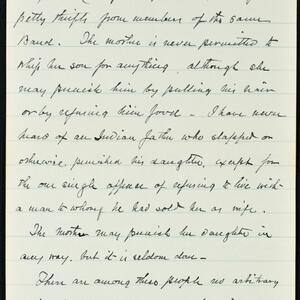 petty thefts from members of the same
Band. The mother is never permitted to
whip her son for anything, although she
may punish him by pulling his hair
or by refusing him food – I have never
heard of an Indian father who slapped or
otherwise punished his daughter, except for
the one single offense of refusing to live with
a man to whom he had sold her as wife.
The mother may punish her daughter in
any way, but it is seldom done –
There are among these people no arbitrary